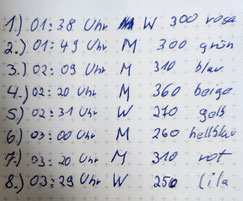 1.) 01:38 Uhr W 300 rosa
2.) 01:49 Uhr M 300 grün
3.) 02:09 Uhr M 310 blau
4.) 02:20 Uhr M 360 beige
5.) 02:31 Uhr W 270 gelb
6.) 03:00 Uhr M 260 hellblau
7.) 03:20 Uhr M 310 rot
8.) 03:29 Uhr W 250 lila